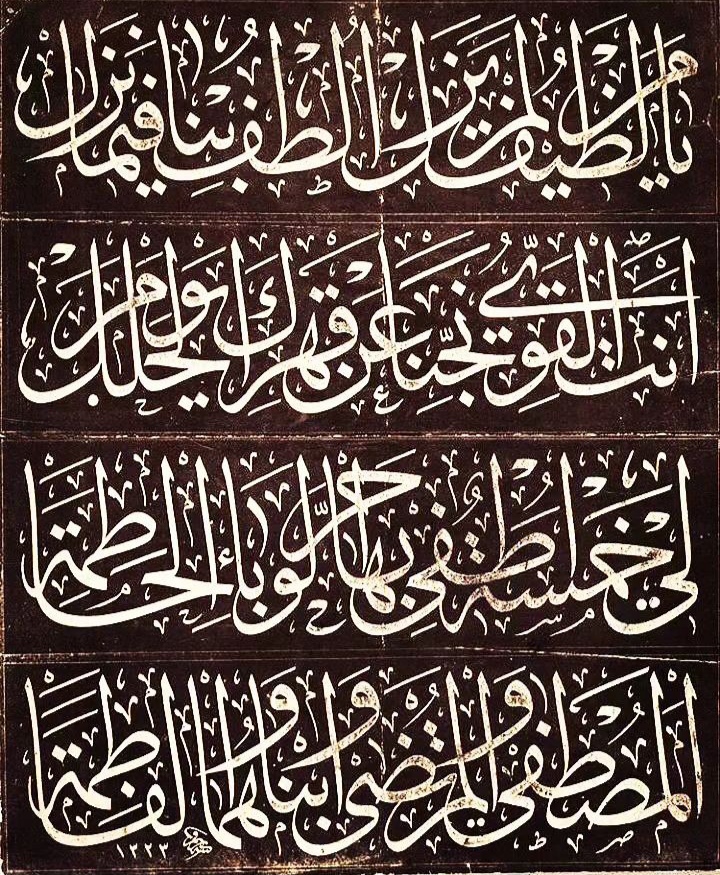 يا من لطيف لم يزل الطف بنا فيما نزل
انت القوي نجنا عن قهرك يوم الخلل
لي خمسة اطفي بها حر الوباء الحاطمة
المصطفى والمرتضى وابناهما والفاطمة
١٢٢٣